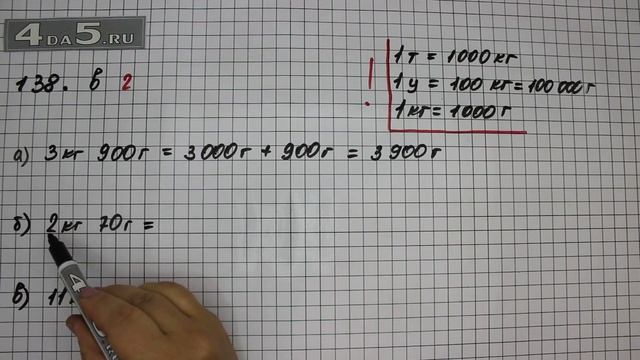 4DA5.RU
138. в 2
1 т = 1000 кг
1 ц = 100 кг = 100 000 г
1 кг = 1000 г
а) 3 кг 900 г = 3 000 г + 900 г = 3 900 г
б) 2 кг 70 г =
в) 11
4